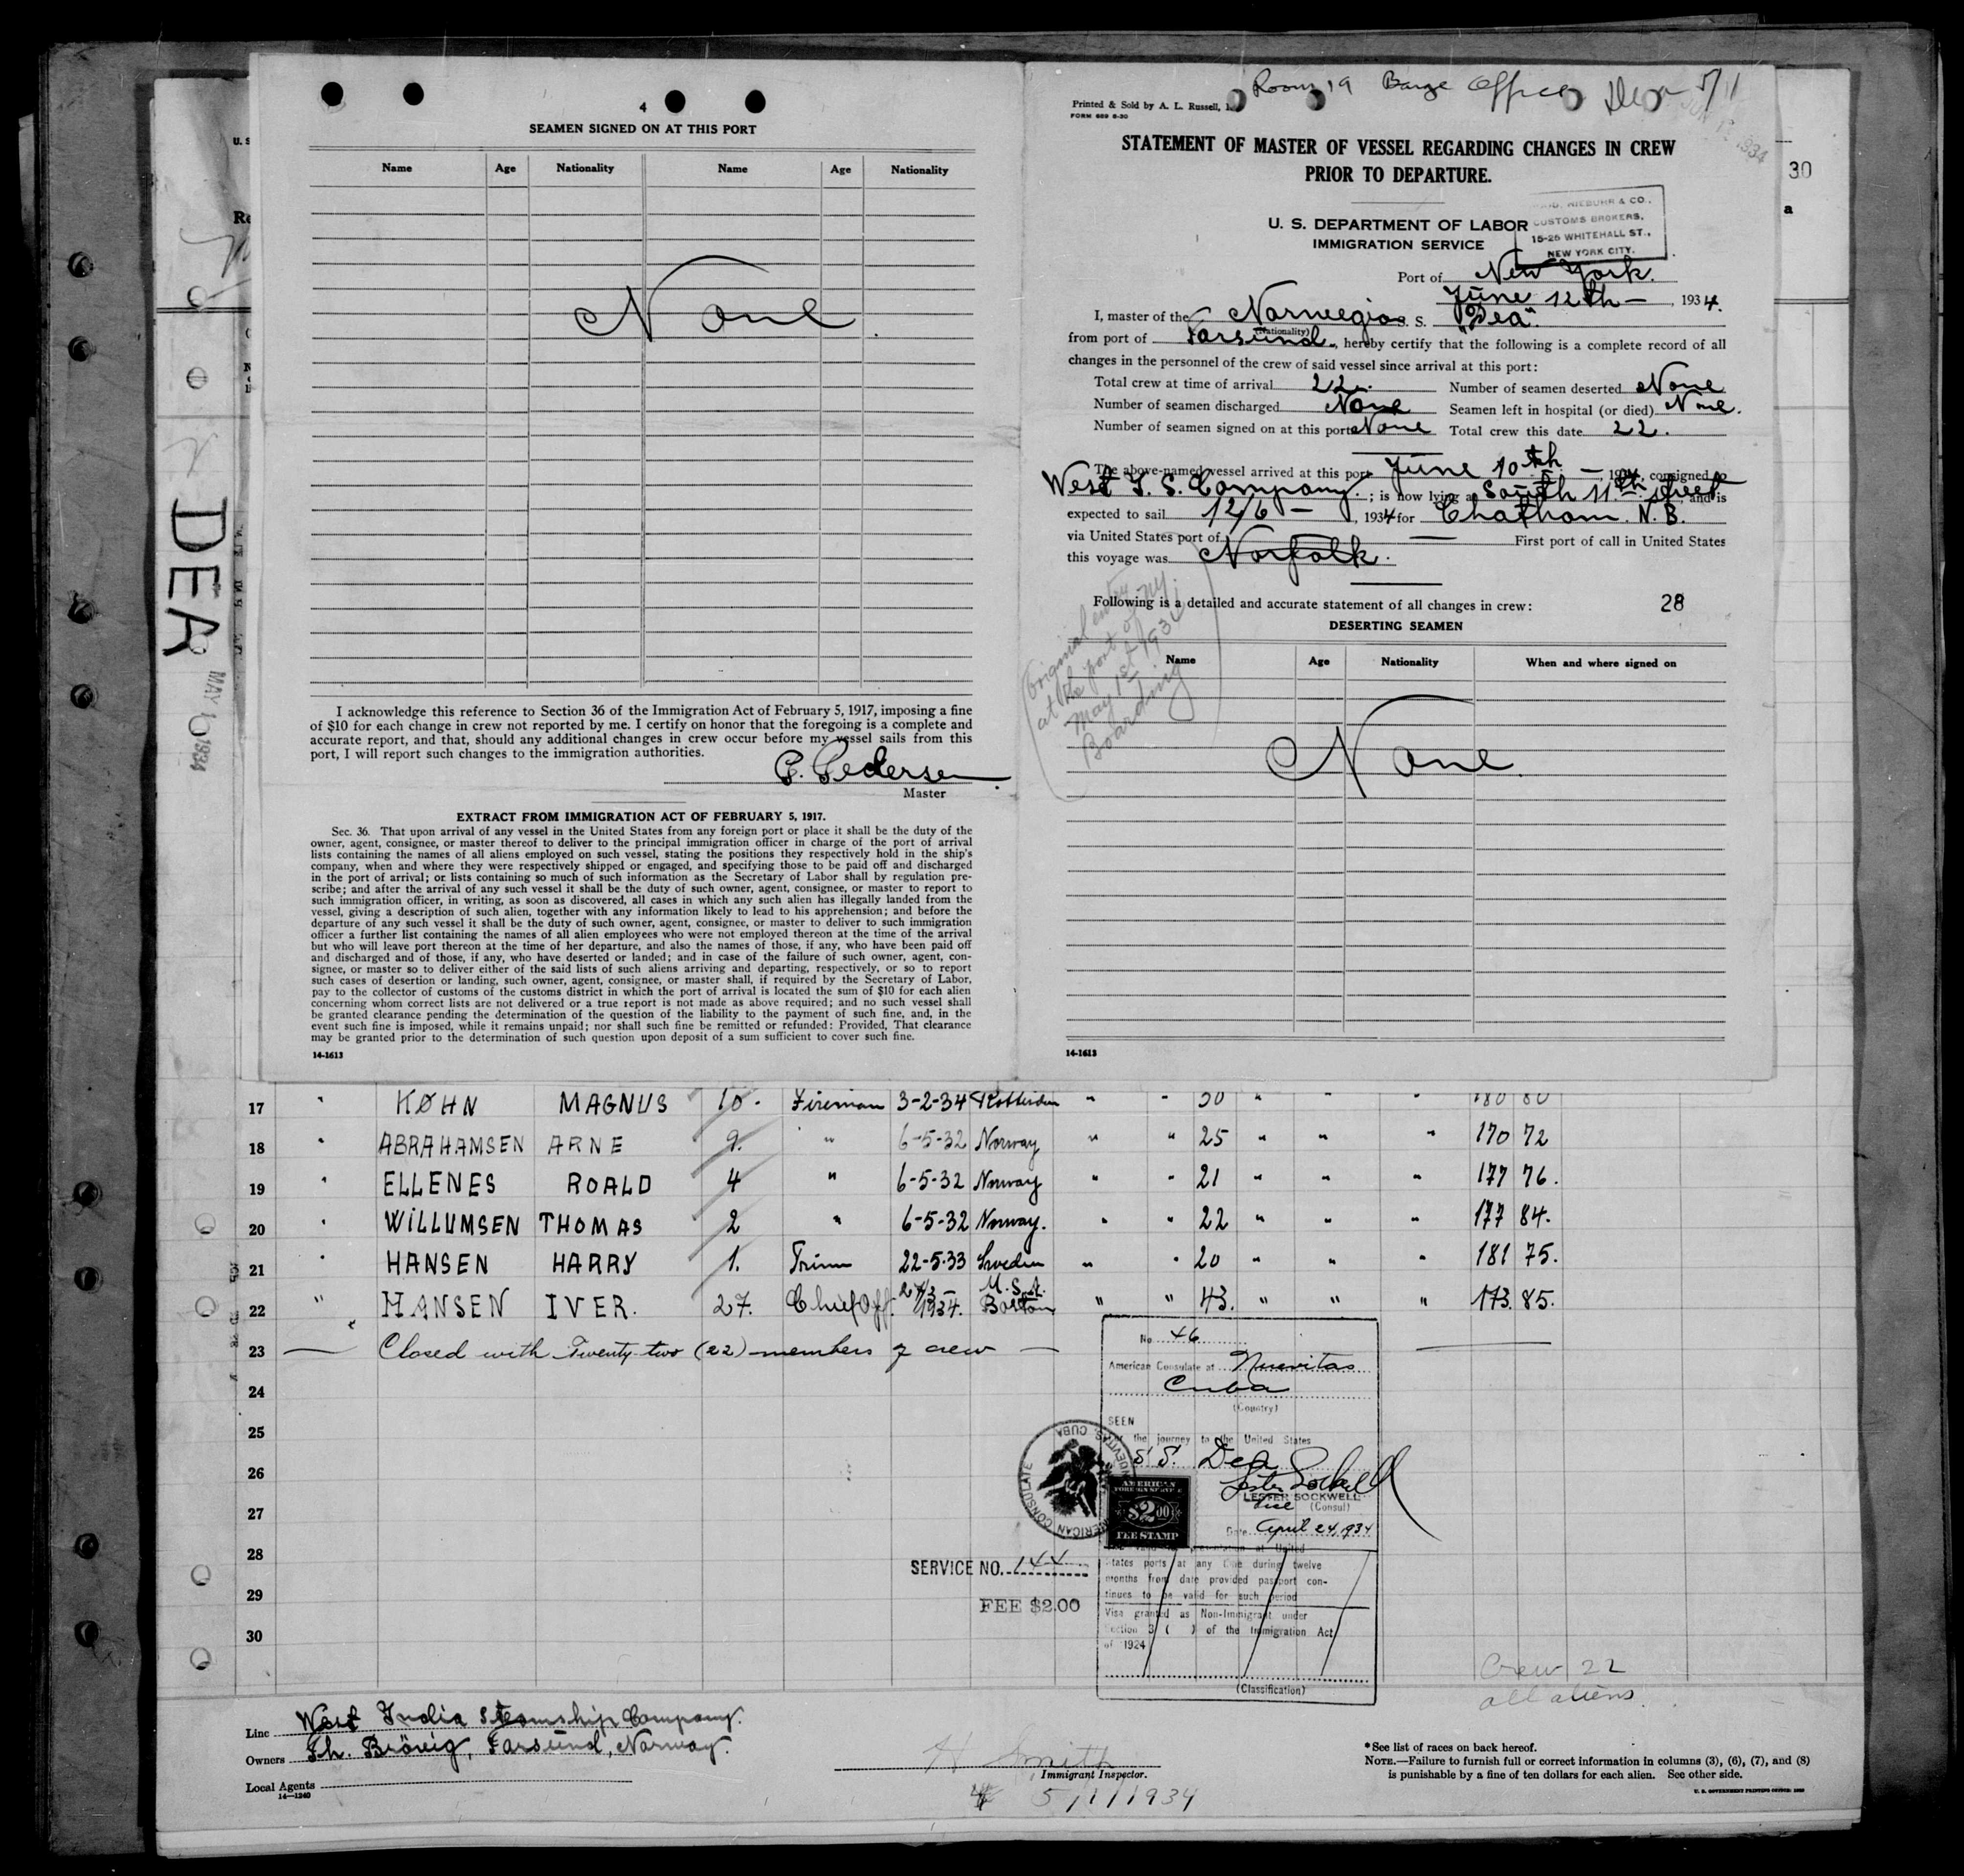 4
SEAMEN SIGNED ON AT THIS PORT
Name Age Nationality Name Age Nationality
None
I acknowledge this reference to Section 36 of the Immigration Act of February 5, 1917, imposing a fine
of $10 for each change in crew not reported by me. I certify on honor that the foregoing is a complete and
accurate report, and that, should any additional changes in crew occur before my vessel sails from this
port, I will report such changes to the immigration authorities.
P. Pedersen
Master
EXTRACT FROM IMMIGRATION ACT OF FEBRUARY 5, 1917.
Sec. 36. That upon arrival of any vessel in the United States from any foreign port or place it shall be the duty of the
owner, agent, consignee, or master thereof to deliver to the principal immigration officer in charge of the port of arrival
lists containing the names of all aliens employed on such vessel, stating the positions they respectively hold in the ship's
company, when and where they were respectively shipped or engaged, and specifying those to be paid off and discharged
in the port of arrival; or lists containing so much of such information as the Secretary of Labor shall by regulation pre-
scribe; and after the arrival of any such vessel it shall be the duty of such owner, agent, consignee, or master to report to
such immigration officer, in writing, as soon as discovered, all cases in which any such alien has illegally landed from the
vessel, giving a description of such alien, together with any information likely to lead to his apprehension; and before the
departure of any such vessel it shall be the duty of such owner, agent, consignee, or master to deliver to such immigration
officer a further list containing the names of all alien employees who were not employed thereon at the time of the arrival
but who will leave port thereon at the time of her departure, and also the names of those, if any, who have been paid off
and discharged and of those, if any, who have deserted or landed; and in case of the failure of such owner, agent, con-
signee, or master so to deliver either of the said lists of such aliens arriving and departing, respectively, or so to report
such cases of desertion or landing, such owner, agent, consignee, or master shall, if required by the Secretary of Labor,
pay to the collector of customs of the customs district in which the port of arrival is located the sum of $10 for each alien
concerning whom correct lists are not delivered or a true report is not made as above required; and no such vessel shall
be granted clearance pending the determination of the question of the liability to the payment of such fine, and, in the
event such fine is imposed, while it remains unpaid; nor shall such fine be remitted or refunded: Provided, That clearance
may be granted prior to the determination of such question upon deposit of a sum sufficient to cover such fine.
14-1613
Room 19 Barge Office Dea 5/1
Printed & Sold by A. L. Russell,
FORM 689 6-30
STATEMENT OF MASTER OF VESSEL REGARDING CHANGES IN CREW
PRIOR TO DEPARTURE.
U. S. DEPARTMENT OF LABOR
IMMIGRATION SERVICE
NIEBUHR & CO.,
CUSTOMS BROKERS,
15-25 WHITEHALL ST.,
NEW YORK CITY.
Port of New York.
June 12th — , 1934.
I, master of the Norwegian S. S. "Dea"
(Nationality)
from port of Farsund, hereby certify that the following is a complete record of all
changes in the personnel of the crew of said vessel since arrival at this port:
Total crew at time of arrival 22. Number of seamen deserted None
Number of seamen discharged None Seamen left in hospital (or died) None.
Number of seamen signed on at this port None Total crew this date 22.
The above-named vessel arrived at this port June 10th — , 1934, consigned to
West I. S. Company. ; is now lying at South 11th street, and is
expected to sail 12/6 — , 1934 for Chatham. N. B.
via United States port of — First port of call in United States
this voyage was Norfolk.
Original entry
at the port of NY
May 1st 1934
Boarding
Following is a detailed and accurate statement of all changes in crew: 28
DESERTING SEAMEN
Name Age Nationality When and where signed on
None
14-1613
30
a
DEA
MAY 10 1934
17 " KØHN MAGNUS 10. Fireman 3-2-34 Rotterdam " " 30 " " " 180 80
18 " ABRAHAMSEN ARNE 9. " 6-5-32 Norway " " 25 " " " 170 72
19 " ELLENES ROALD 4 " 6-5-32 Norway " " 21 " " " 177 76.
20 " WILLUMSEN THOMAS 2 " 6-5-32 Norway. " " 22 " " " 177 84.
21 " HANSEN HARRY 1. Trimm 22-5-33 Sweden " " 20 " " " 181 75.
22 " HANSEN IVER. 27. Chief Off. 24/3 - 1934. U.S.A. Boston " " 43. " " " 173. 85.
23 — Closed with Twenty-two (22) members of crew —
24
25
26
27
28
29
30
No. 46
American Consulate at Nuevitas
Cuba
(Country)
SEEN
the journey to the United States
S.S. Dea
Lester Sockwell
LESTER SOCKWELL
Vice (Consul)
Date April 24, 1934
presentation at United
States ports at any time during twelve
months from date provided passport con-
tinues to be valid for such period
Visa granted as Non-Immigrant under
Section 3 ( ) of the Immigration Act
of 1924
(Classification)
AMERICAN CONSULATE NUEVITAS, CUBA
AMERICAN
FOREIGN SERVICE
$2.00
FEE STAMP
SERVICE NO. 144
FEE $2.00
Crew 22
all aliens.
Line West India Steamship Company.
Owners Th. Brövig, Farsund, Norway.
Local Agents
14-1240
H Smith
Immigrant Inspector.
5/1/1934
*See list of races on back hereof.
NOTE.—Failure to furnish full or correct information in columns (3), (6), (7), and (8)
is punishable by a fine of ten dollars for each alien. See other side.
U. S. GOVERNMENT PRINTING OFFICE